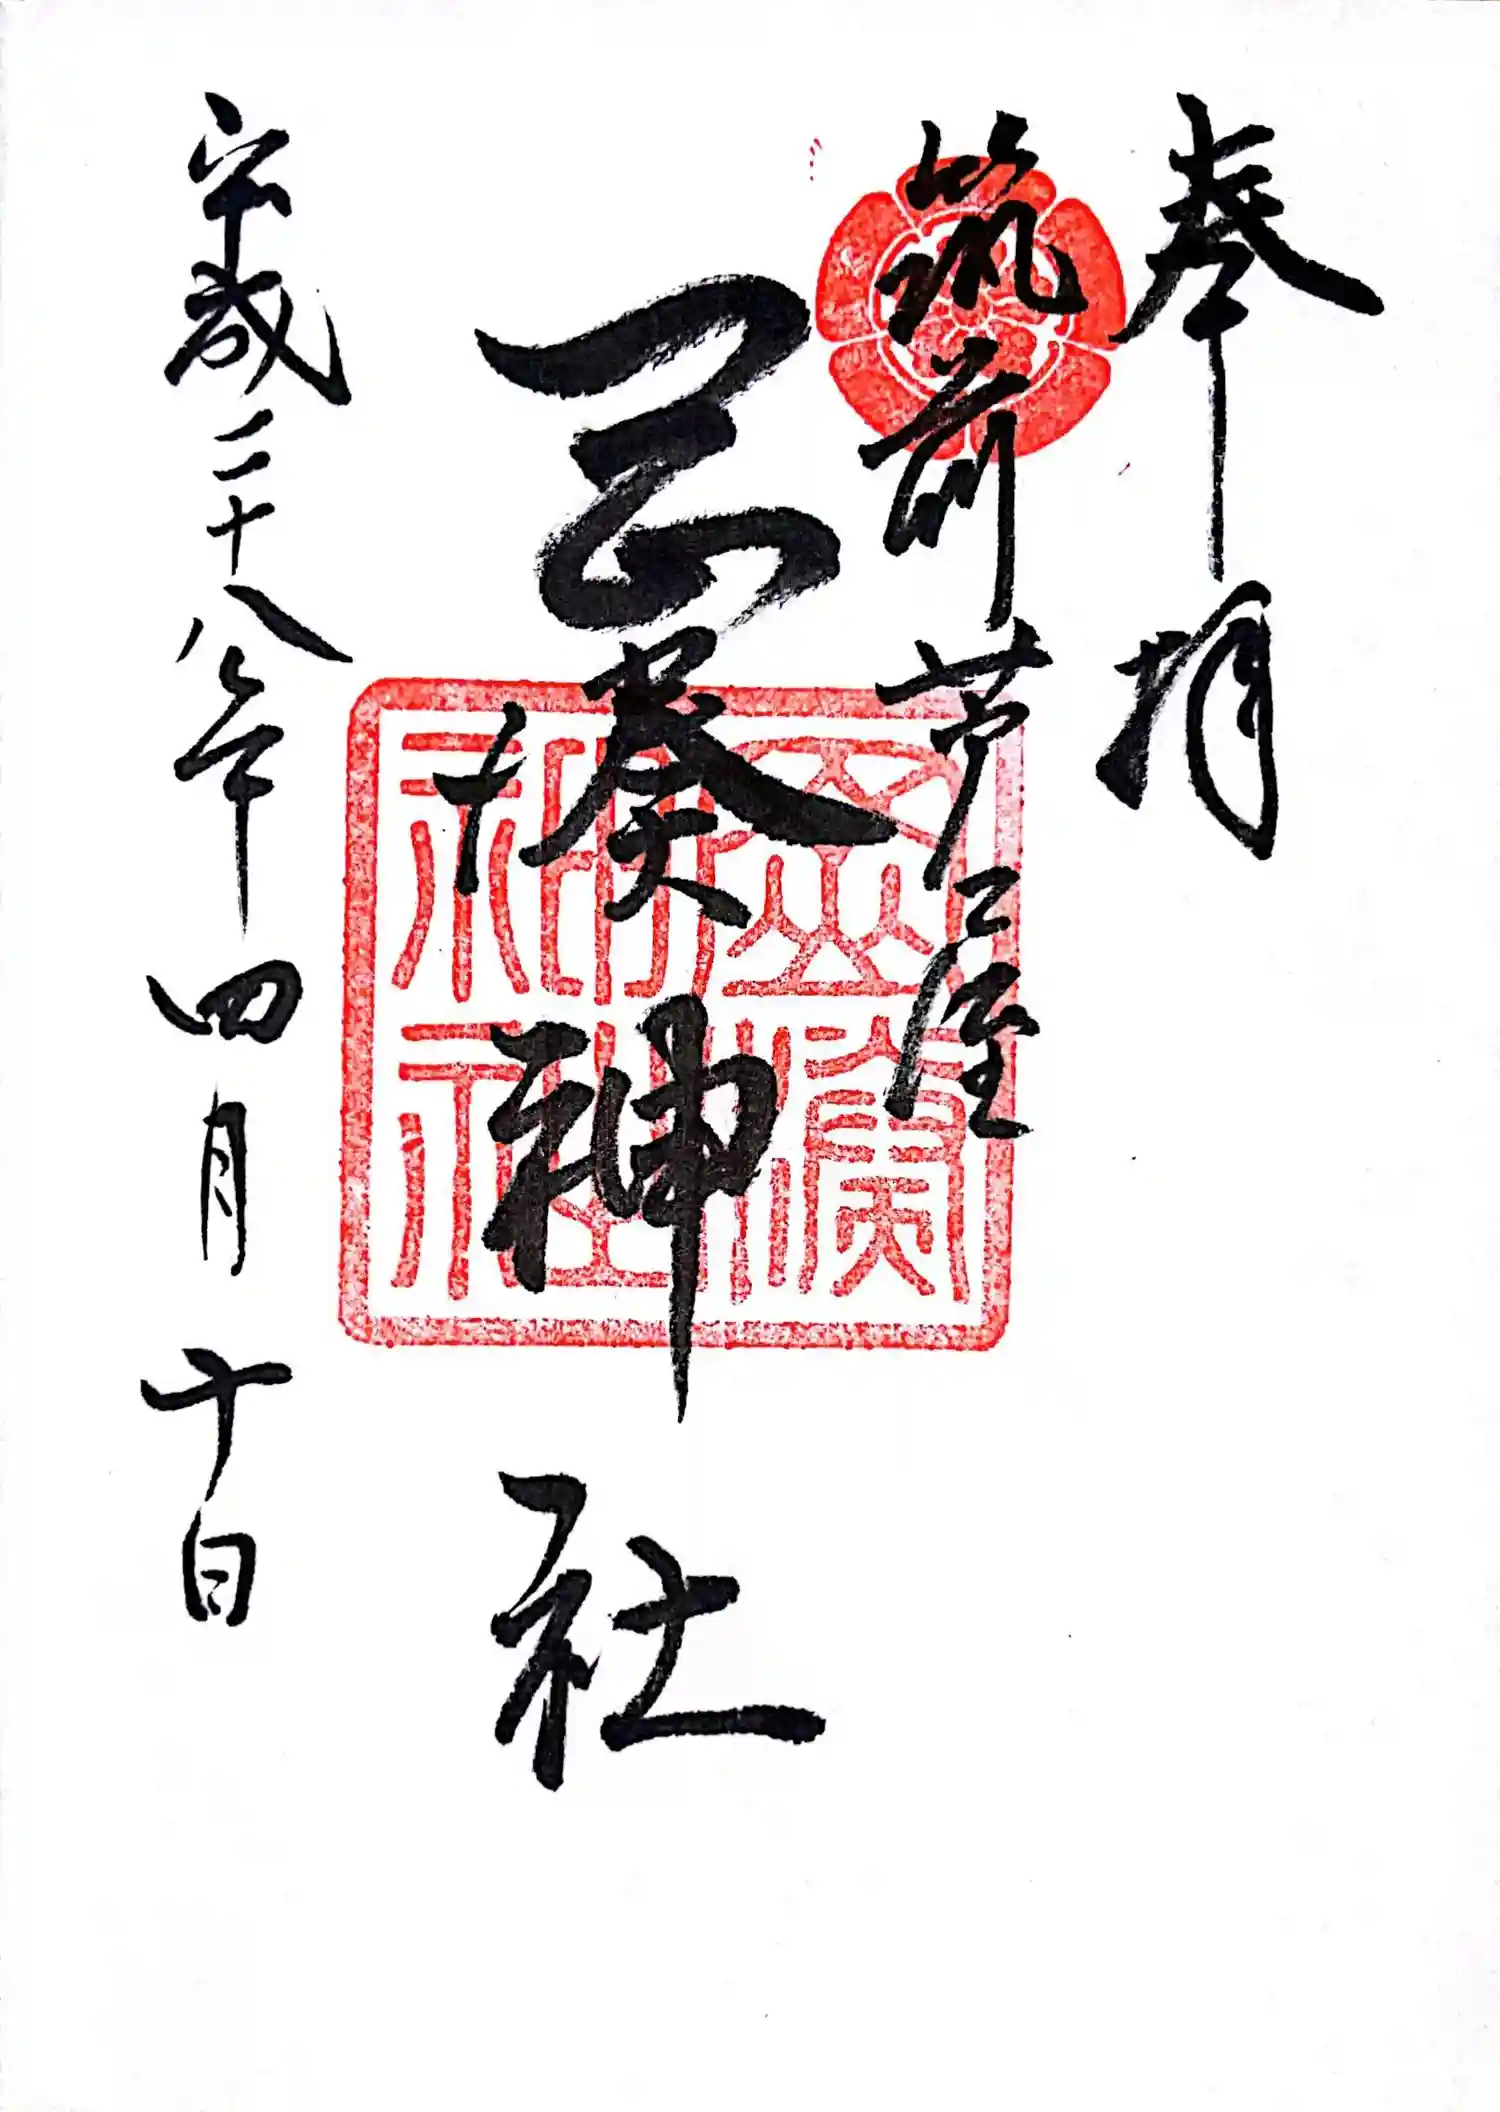 奉拝
筑前芦屋
岡湊神社
平成二十八年四月十日
岡
神社